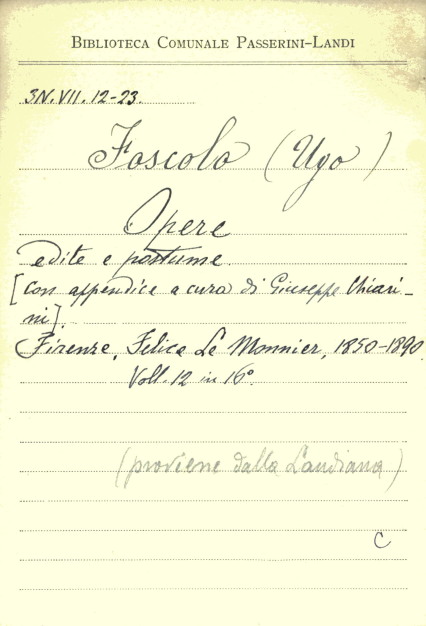 BIBLIOTECA COMUNALE PASSERINI-LANDI
3N.VII.12-23.
Foscolo (Ugo)
Opere
edite e postume.
[con appendice a cura di Giuseppe Chiari-
ni].
Firenze, Felice Le Monnier, 1850-1890
Voll. 12 in 16°.
(proviene dalla Landiana)
C